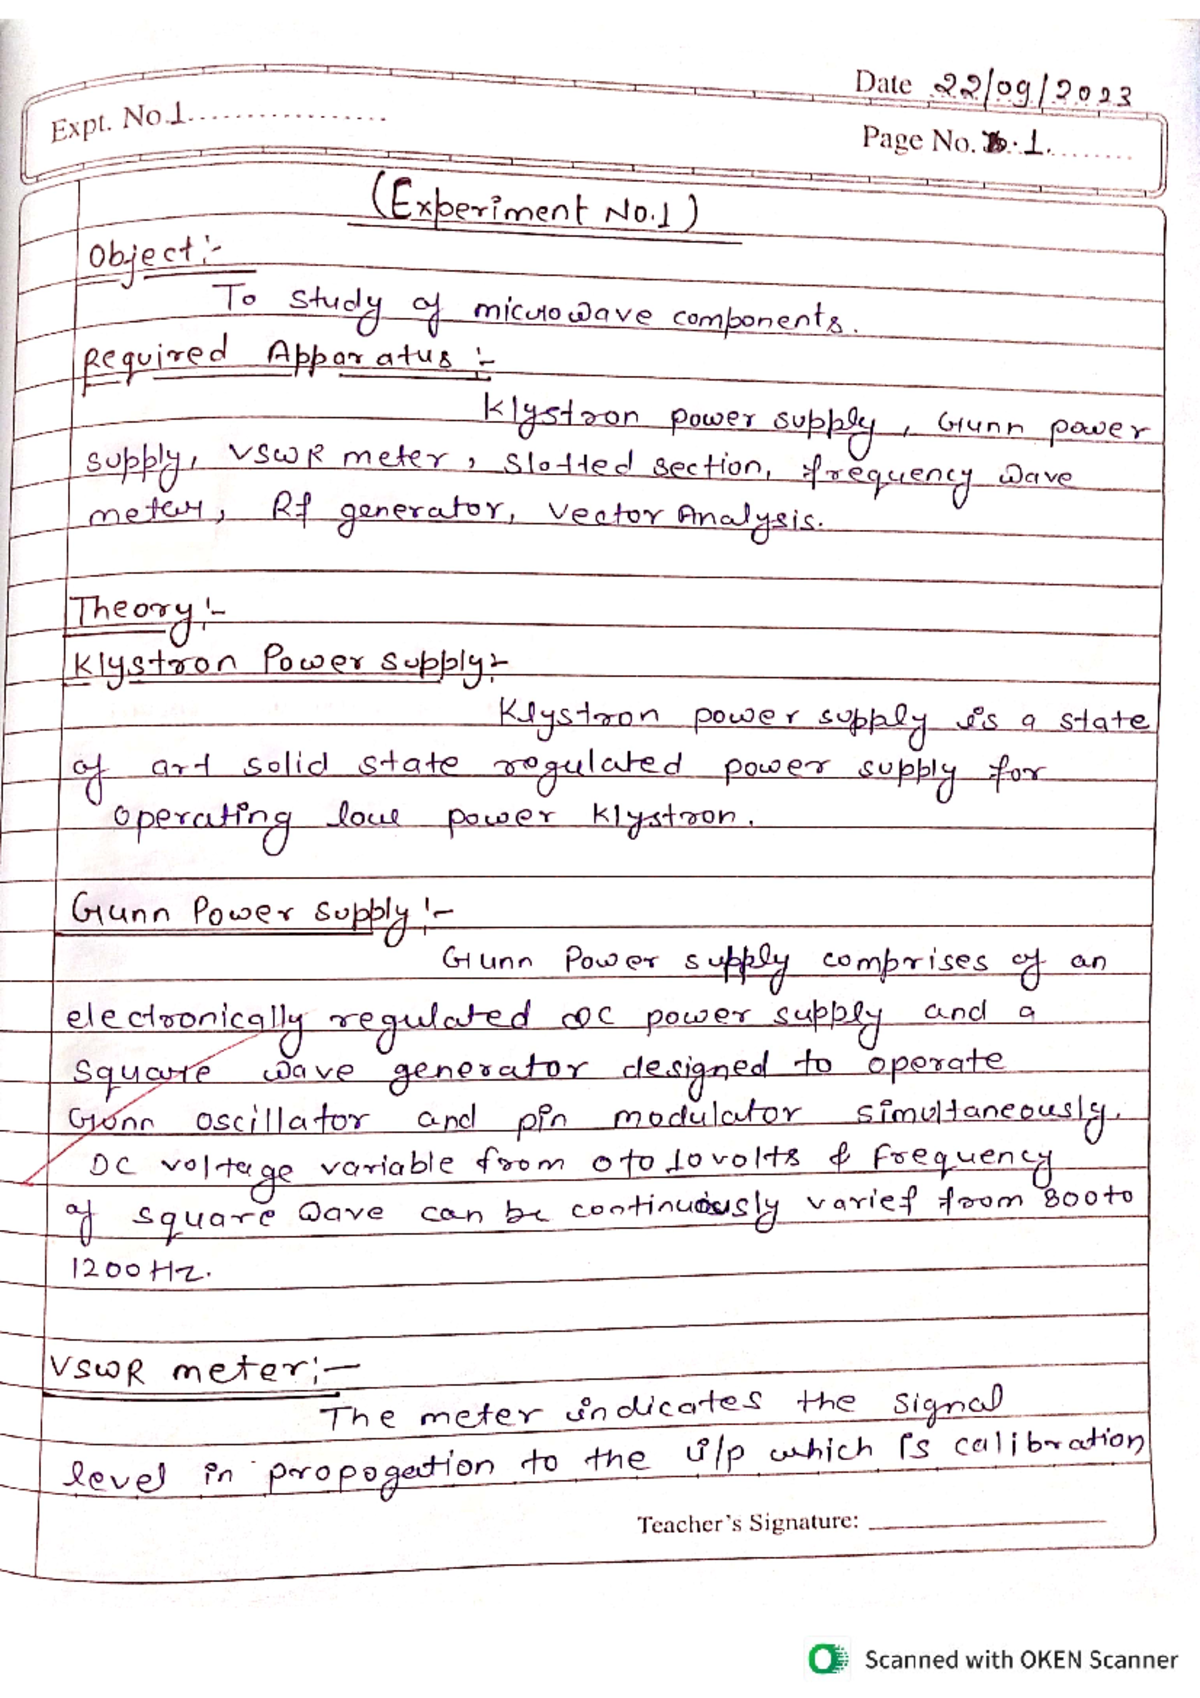 Date 22/09/2023
Expt. No.1..................
Page No. 1.........
(Experiment No.1)
Object:-
To study of microwave components.
Required Apparatus :-
Klystron power supply, Gunn power
supply, VSWR meter, Slotted section, frequency wave
meter, Rf generator, Vector Analysis.
Theory:-
Klystron Power supply:-
Klystron power supply is a state
of art solid state rogulated power supply for
operating low power Klystron.
Gunn Power supply:-
Gunn Power supply comprises of an
electronically regulated DC power supply and a
square wave generator designed to operate
Gunn oscillator and pin modulator simultaneously.
DC voltage variable from 0 to 10 volts & Frequency
of square wave can be continuously varief from 800 to
1200 Hz.
VSWR meter:-
The meter indicates the signal
level in propogation to the i/p which is calibration
Teacher's Signature:
Scanned with OKEN Scanner